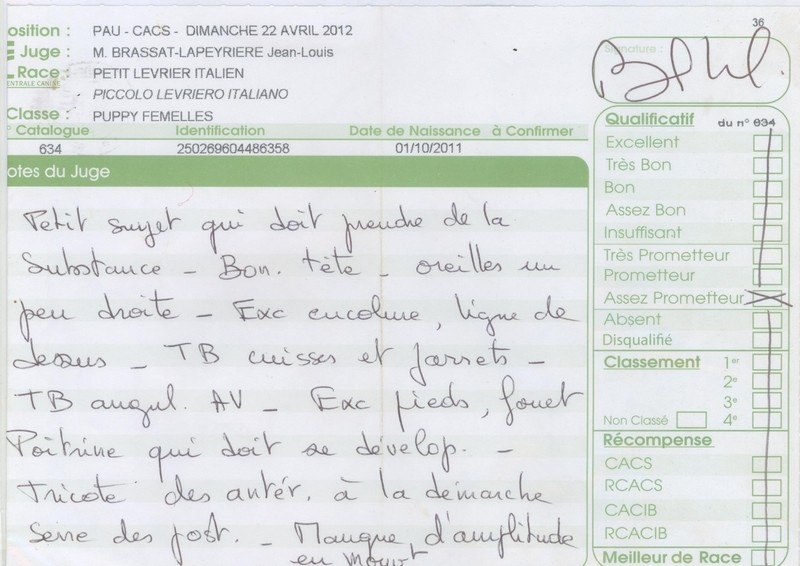 osition : PAU - CACS - DIMANCHE 22 AVRIL 2012
Juge : M. BRASSAT-LAPEYRIERE Jean-Louis
Race : PETIT LEVRIER ITALIEN
PICCOLO LEVRIERO ITALIANO
Classe : PUPPY FEMELLES
° Catalogue Identification Date de Naissance à Confirmer
634 250269604486358 01/10/2011
otes du Juge
Petit sujet qui doit prendre de la
substance - Bon. tête - oreilles un
peu droite - Exc encolure, ligne de
dessus - TB cuisses et jarrets -
TB angul. AV - Exc pieds, fouet
Poitrine qui doit se dévelop. -
Tricote des antér. à la démarche
serre des post. - Manque d'amplitude
en mouvt
36
Signature :
Qualificatif du n° 634
Excellent
Très Bon
Bon
Assez Bon
Insuffisant
Très Prometteur
Prometteur
Assez Prometteur
Absent
Disqualifié
Classement 1er
2e
3e
Non Classé 4e
Récompense
CACS
RCACS
CACIB
RCACIB
Meilleur de Race